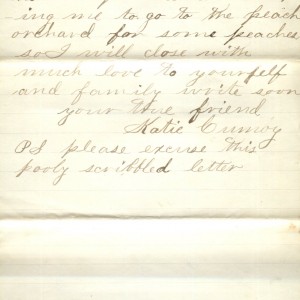 ing me to go to the peach
orchard for some peaches
so I will close with
much love to yourself
and family write soon
your true friend
Katie
PS please excuse this
pooly scribbled letter